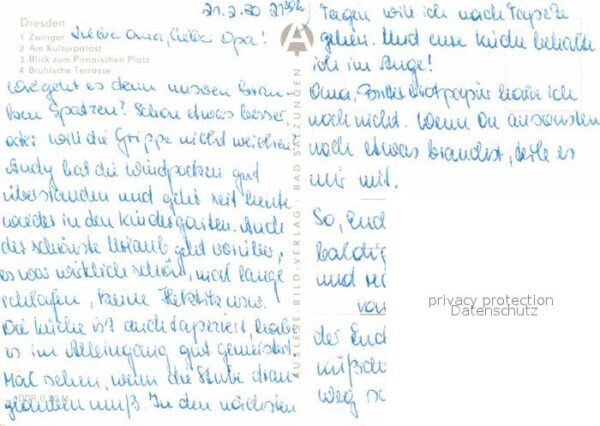 Dresden
1 Zwinger
2 Am Kulturpalast
3 Blick zum Pirnaischen Platz
4 Brühlsche Terrasse
21.2.80 21 30h
Liebe Oma, lieber Opa!
Wie geht es denn unseren kran-
ken Spatzen? Schon etwas besser,
oder will die Grippe nicht weichen?
Andy hat die Windpocken gut
überstanden und geht seit heute
wieder in den Kindergarten. Auch
der schönste Urlaub geht vorüber,
es war wirklich schön, mal lange
schlafen, keine usw.
Die Küche ist auch tapeziert, habe
es im Alleingang gut gemeistert.
Mal sehen, wann die Stube dran
glauben muß. In den nächsten
DDR 0,20 M
AUSLESE-BILD-VERLAG · BAD SALZUNGEN
Tagen will ich nach Tapete
gehen. Und eure Küche behalte
ich im Auge!
Oma, Butterbrotpapier habe ich
noch nicht. Wenn Du ansonsten
noch etwas brauchst, teile es
mir mit.
So, End
baldig
und
von
der End
weg
privacy protection
Datenschutz